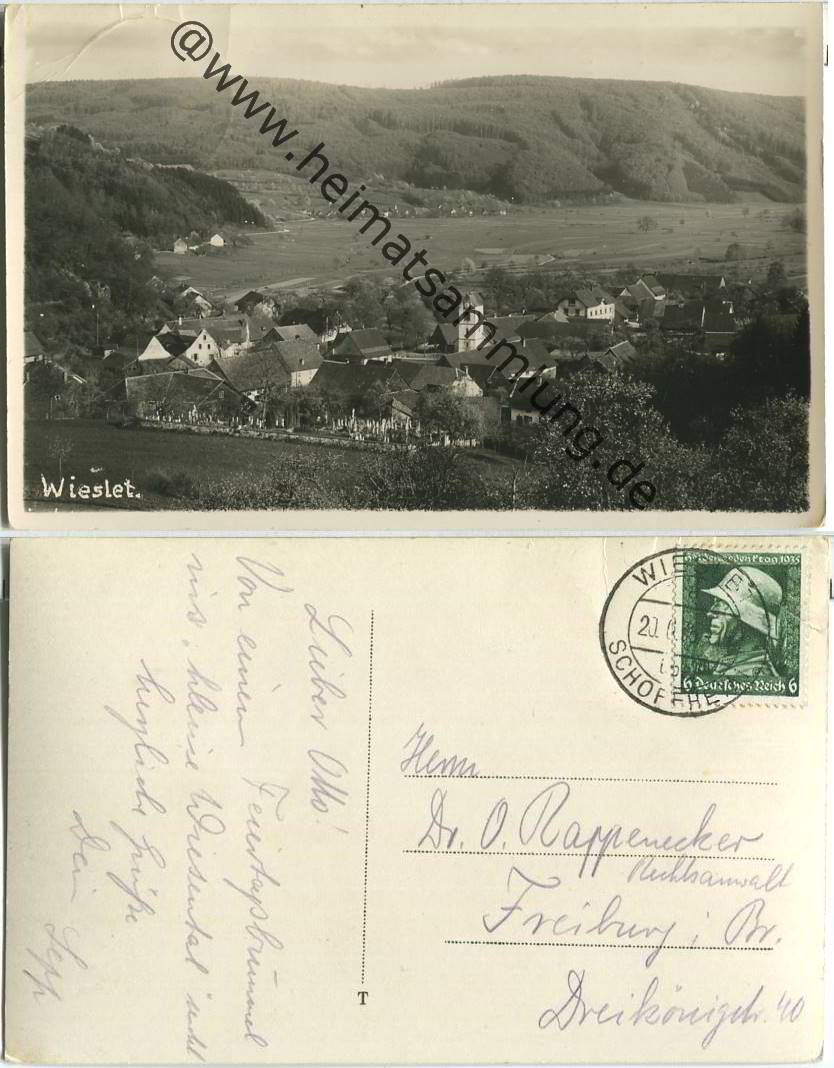 @www.heimatsammlung.de
Wieslet.
Heldengedenktag 1935
WIESLET
20.
SCHOPFHE
6 Deutsches Reich 6
Lieber Otto!
Von einem Feiertagsbummel
ins "kleine Wiesental" sendet
herzliche Grüße
Dein Sepp
T
Herrn
Dr. O. Rappenecker
Rechtsanwalt
Freiburg i. Br.
Dreikönigstr. 40